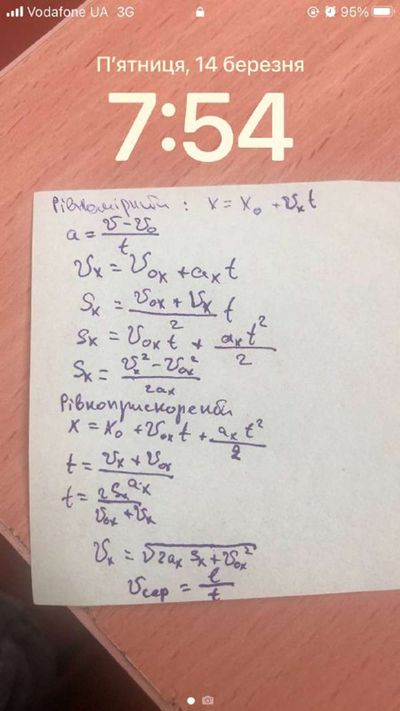 Vodafone UA 3G 95%
П'ятниця, 14 березня
7:54
Рівномірний : x = x₀ + υₓt
a = (υ - υ₀)/t
υₓ = υ₀ₓ + aₓt
Sₓ = (υ₀ₓ + υₓ)/2 t
sₓ = υ₀ₓt + aₓt²/2
Sₓ = (υₓ² - υ₀ₓ²)/2aₓ
Рівноприскорений
x = x₀ + υ₀ₓt + aₓt²/2
t = (υₓ + υ₀ₓ)/aₓ
t = 2Sₓ/(υ₀ₓ + υₓ)
υₓ = √(2aₓsₓ + υ₀ₓ²)
υсер = l/t